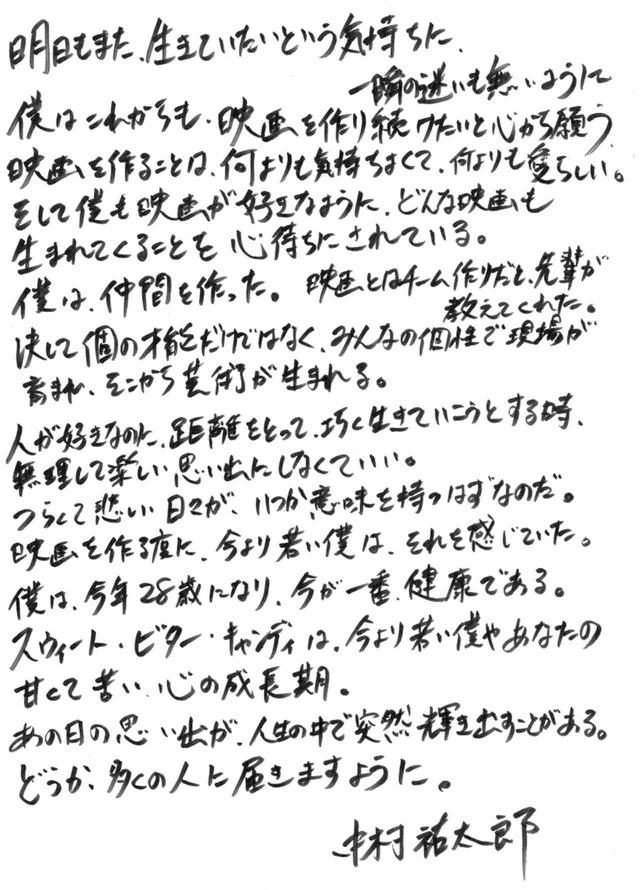 明日もまた、生きていたいという気持ちに、
一瞬の迷いも無いように
僕はこれからも、映画を作り続けたいと心から願う。
映画を作ることは、何よりも気持ちよくて、何よりも愛らしい。
そして僕も映画が好きなように、どんな映画も
生まれてくることを心待ちにされている。
僕は、仲間を作った。映画とはチーム作りだと、先輩が
教えてくれた。
決して個の才能だけではなく、みんなの個性で現場が
育まれ、そこから芸術が生まれる。
人が好きなのに、距離をとって、巧く生きていこうとする時、
無理して楽しい思い出にしなくていい。
つらくて悲しい日々が、いつか意味を持つはずなのだ。
映画を作る度に、今より若い僕は、それを感じていた。
僕は、今年28歳になり、今が一番、健康である。
スウィート・ビター・キャンディは、今より若い僕やあなたの
甘くて苦い、心の成長期。
あの日の思い出が、人生の中で突然輝き出すことがある。
どうか、多くの人に届きますように。
中村祐太郎